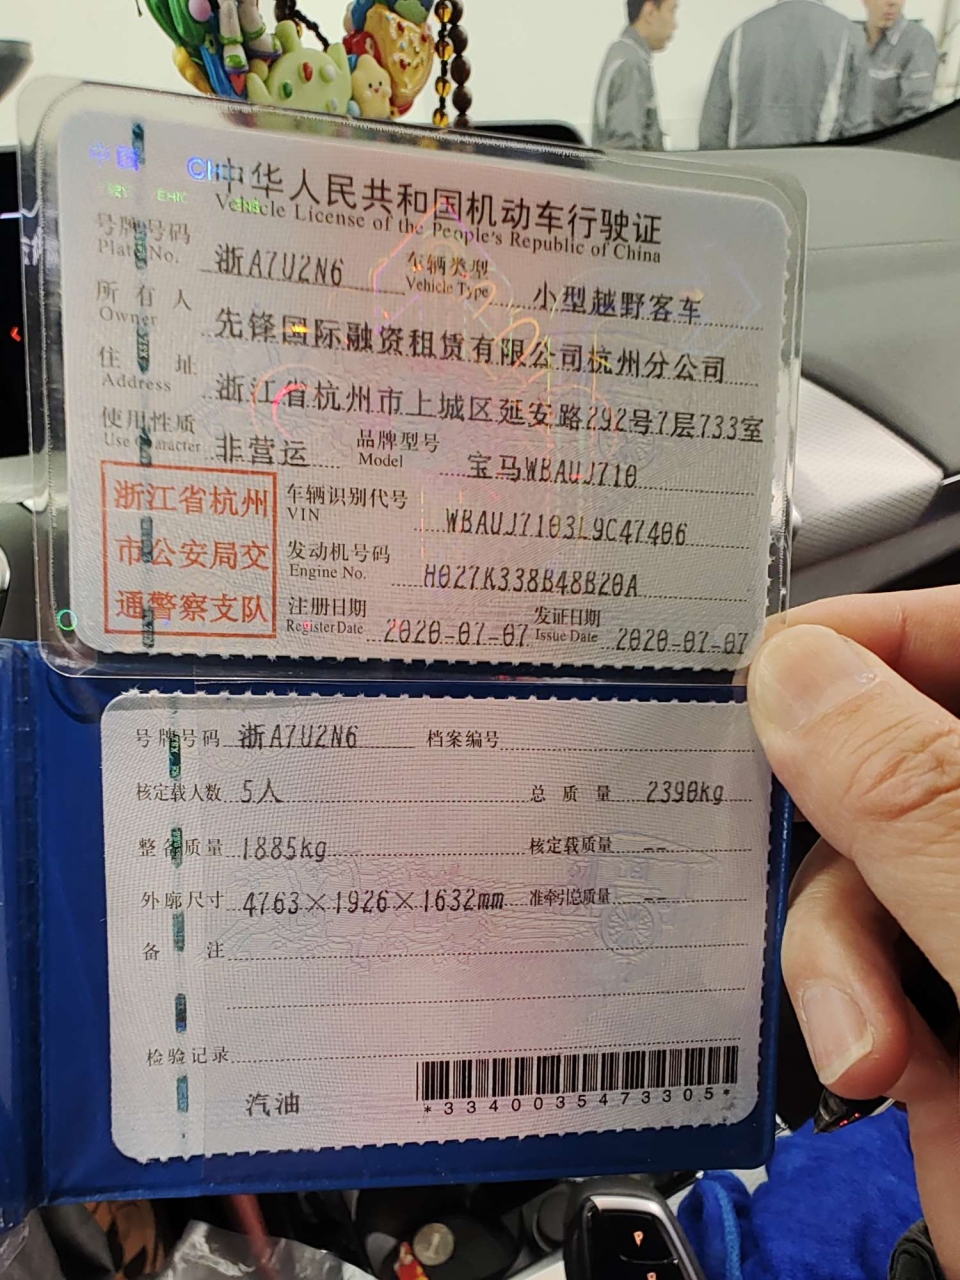 中国 CHI
中华人民共和国机动车行驶证
Vehicle License of the People's Republic of China
号牌号码 浙A7U2N6 车辆类型 小型越野客车
Plate No. Vehicle Type
所有人 先锋国际融资租赁有限公司杭州分公司
Owner
住址 浙江省杭州市上城区延安路292号7层733室
Address
使用性质 非营运 品牌型号 宝马WBAUJ710
Use Character Model
浙江省杭州
市公安局交
通警察支队
车辆识别代号 WBAUJ7103L9C47406
VIN
发动机号码 H027K338B48B20A
Engine No.
注册日期 2020-07-07 发证日期 2020-07-07
Register Date Issue Date
号牌号码 浙A7U2N6 档案编号
核定载人数 5人 总质量 2390kg
整备质量 1885kg 核定载质量 --
外廓尺寸 4763×1926×1632mm 准牵引总质量 --
备注
检验记录
汽油
*3340035473305*
P